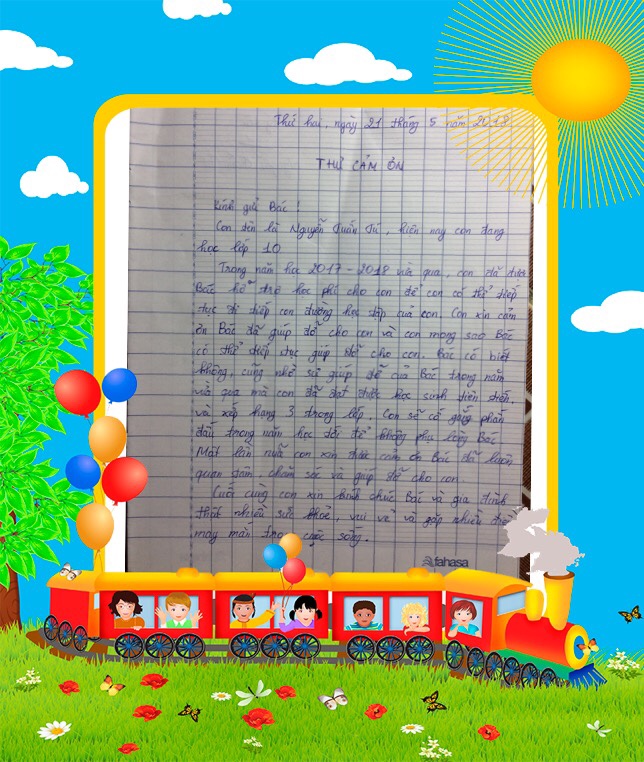 Thứ hai, ngày 21 tháng 5 năm 2018
THƯ CẢM ƠN
Kính gửi Bác !
Con tên là Nguyễn Tuấn Tú, hiện nay con đang
học lớp 10
Trong năm học 2017 - 2018 vừa qua, con đã được
Bác hỗ trợ học phí cho con để con có thể tiếp
tục đi tiếp con đường học tập của con. Con xin cảm
ơn Bác đã giúp đỡ cho con và con mong sao Bác
có thể tiếp tục giúp đỡ cho con. Bác có biết
không, cũng nhờ sự giúp đỡ của Bác trong năm
vừa qua mà con đã đạt được học sinh tiên tiến
và xếp hạng 3 trong lớp. Con sẽ cố gắng phấn
đấu trong năm học tới để không phụ lòng Bác
Một lần nữa con xin được cảm ơn Bác đã luôn
quan tâm, chăm sóc và giúp đỡ cho con.
Cuối cùng con xin kính chúc Bác và gia đình
thật nhiều sức khoẻ, vui vẻ và gặp nhiều
may mắn trong cuộc sống.
fahasa